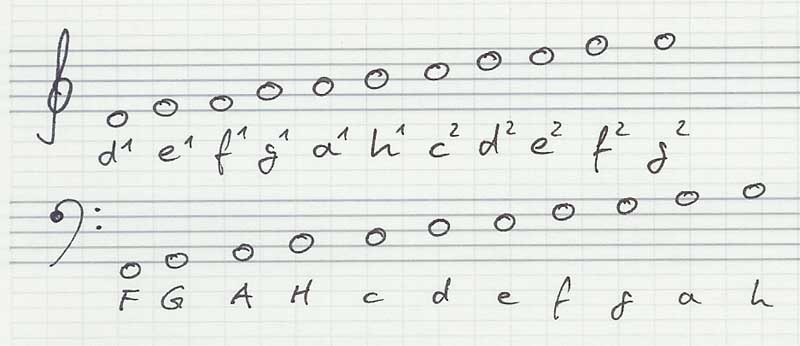 d¹ e¹ f¹ g¹ a¹ h¹ c² d² e² f² g²
F G A H c d e f g a h